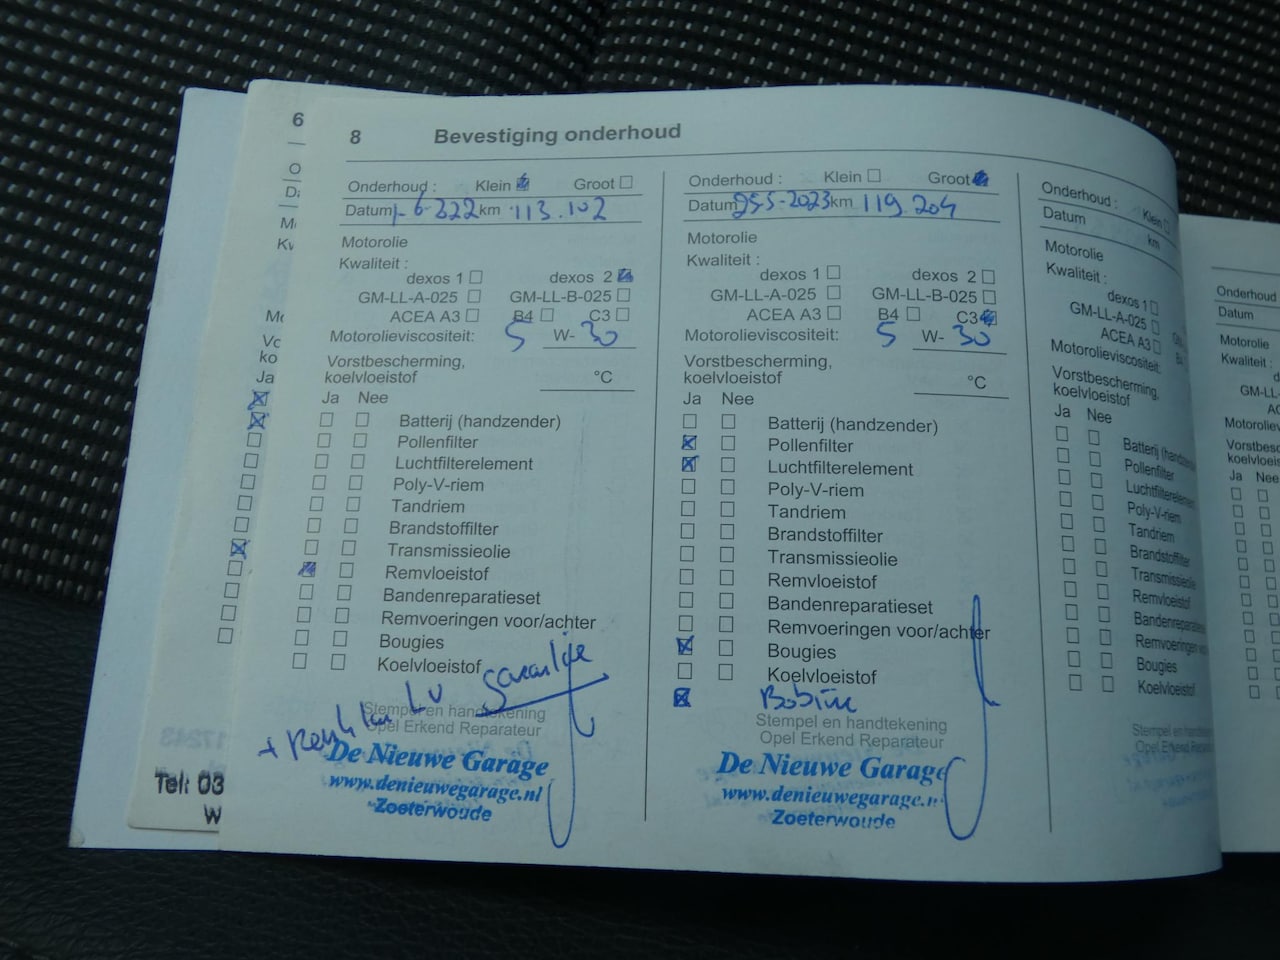 6
8 Bevestiging onderhoud
Onderhoud : Klein Groot
Datum 1-6-222 km 113.102
Motorolie
Kwaliteit :
dexos 1 dexos 2
GM-LL-A-025 GM-LL-B-025
ACEA A3 B4 C3
Motorolieviscositeit: 5 W- 30
Vorstbescherming,
koelvloeistof °C
Ja Nee
Batterij (handzender)
Pollenfilter
Luchtfilterelement
Poly-V-riem
Tandriem
Brandstoffilter
Transmissieolie
Remvloeistof
Bandenreparatieset
Remvoeringen voor/achter
Bougies
Koelvloeistof
garantie
+ LV
Stempel en handtekening
Opel Erkend Reparateur
De Nieuwe Garage
www.denieuwegarage.nl
Zoeterwoude
Onderhoud : Klein Groot
Datum 25-5-2023 km 119.204
Motorolie
Kwaliteit :
dexos 1 dexos 2
GM-LL-A-025 GM-LL-B-025
ACEA A3 B4 C3
Motorolieviscositeit: 5 W- 30
Vorstbescherming,
koelvloeistof °C
Ja Nee
Batterij (handzender)
Pollenfilter
Luchtfilterelement
Poly-V-riem
Tandriem
Brandstoffilter
Transmissieolie
Remvloeistof
Bandenreparatieset
Remvoeringen voor/achter
Bougies
Koelvloeistof
Bobine
Stempel en handtekening
Opel Erkend Reparateur
De Nieuwe Garage
www.denieuwegarage.n
Zoeterwoude
Onderhoud : Klein
Datum km
Motorolie
Kwaliteit :
dexos 1
GM-LL-A-025
ACEA A3
Motorolieviscositeit:
Vorstbescherming,
koelvloeistof
Ja Nee
Batterij
Pollenfilter
Luchtfilterelement
Poly-V-riem
Tandriem
Brandstoffilter
Transmissieolie
Remvloeistof
Bandenreparatieset
Remvoeringen
Bougies
Koelvloeistof
Stempel en
Opel Erkend
Onderhoud
Datum
Motorolie
Kwaliteit :
GM-LL-
Ja Nee
Ja
Tel: 03
W